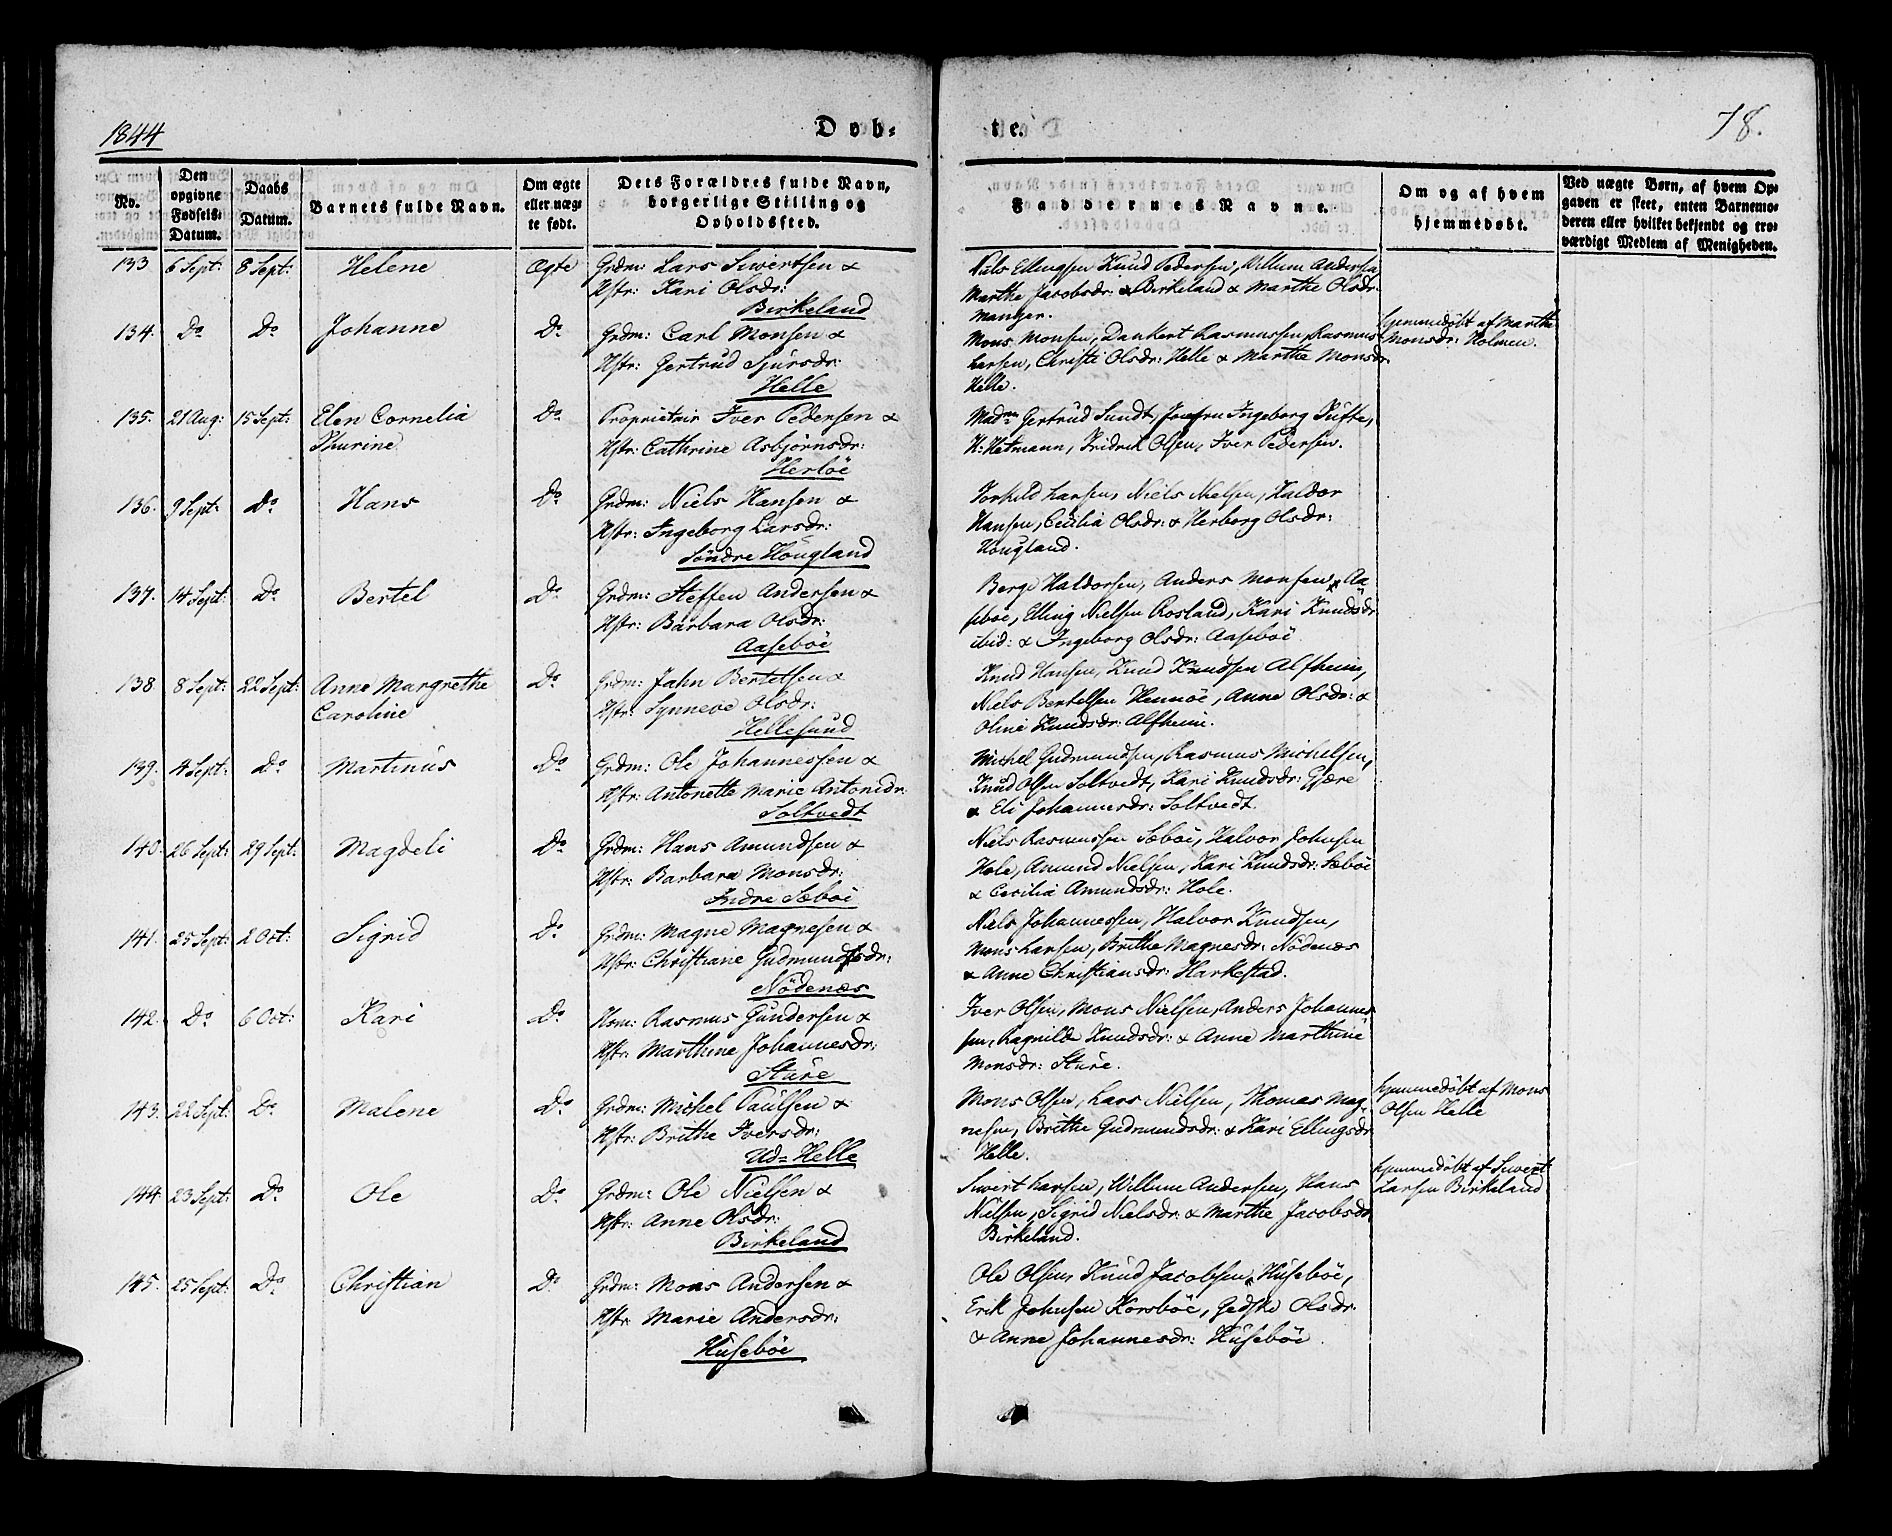 1844
Døb-
te.
78.
No.
Den opgivne Fødsels-Datum.
Daabs Datum.
Barnets fulde Navn.
Om ægte eller uægte født.
Dets Forældres fulde Navn, borgerlige Stilling og Opholdssted.
Faddernes Navne.
Om og af hvem hjemmedøbt.
Ved uægte Børn, af hvem Opgaven er skeet, enten Barnemoderen eller hvilket bekjendt og troværdigt Medlem af Menigheden.
133 6 Sept: 8 Sept: Helene Ægte Grdm: Lars Siwertsen &
Hstr: Kari Olsdr:
Birkeland
Niels Ellingsen Knud Pedersen, Willum Andersen
Marthe Jacobsdr: & Birkeland & Marthe Olsdr:
Manger.
134. Do Do Johanne Do Grdm: Carl Monsen &
Hstr: Gertrud Sjursdr:
Helle
Mons Monsen, Dankert Rasmussen, Rasmus
Larsen, Christi Olsdr: Helle & Marthe Monsdr
Helle.
hjemmedöbt af Marthe
Monsdr: Holmen.
135. 21 Aug: 15 Sept: Elen Cornelia
Thurine
Do Proprietair Iver Pedersen &
Hstr: Cathrine Asbjørnsdr:
Herlöe
Madme Gertrud Sundt, Jomfru Ingeborg Tufte,
H: Hetmann, Fridrik Olsen, Iver Pedersen.
136. 9 Sept: Do Hans Do Grdm: Niels Hansen &
Hstr: Ingeborg Larsdr:
Söndre Hougland
Torkild Larsen, Niels Nielsen, Haldor
Hansen, Cecilia Olsdr: & Herborg Olsdr:
Hougland.
137. 14 Sept: Do Bertel Do Grdm: Steffen Andersen &
Hstr: Barbara Olsdr:
Aaseböe
Berge Haldorsen, Anders Monsen, Aa-
seböe, Elling Nielsen Rosland, Kari Knudsdr
ibid: & Ingeborg Olsdr: Aaseböe
138 8 Sept: 22 Sept: Anne Margrethe
Caroline
Do Grdm: Jahn Bertelsen &
Hstr: Synneve Olsdr:
Hellesund
Knud Hansen, Knud Knudsen Alfheim,
Niels Bertelsen Hennöe, Anne Olsdr: &
Oline Knudsdr: Alfheim.
139. 4 Sept: Do Martinus Do Grdm: Ole Johannessen &
Hstr: Antonette Marie Antonidr:
Soltvedt
Michel Gudmundsen, Rasmus Michelsen,
Knud Olsen Soltvedt, Kari Knudsdr: Gjære
& Eli Johannesdr: Soltvedt.
140. 26 Sept: 29 Sept: Magdeli Do Grdm: Hans Amundsen &
Hstr: Barbara Monsdr:
Indre Sæböe
Niels Rasmussen Sæböe, Halvor Johnsen
Hole, Amund Nielsen, Kari Knudsdr: Sæböe
& Cecilia Amundsdr: Hole.
141. 25 Sept: 2 Oct: Sigrid Do Grdm: Magne Magnesen &
Hstr: Christiane Gudmundsdr:
Nödenæs
Niels Johannessen, Halvor Knudsen,
Mons Larsen, Brithe Magnesdr: Nödenæs
& Anne Christiansdr: Harkestad.
142. Do 6 Oct: Kari Do Hsm: Rasmus Gundersen &
Hstr: Marthine Johannesdr:
Sture
Iver Olsen, Mons Nielsen, Anders Johannes
sen, Ragnilde Knudsdr: & Anne Marthine
Monsdr: Sture.
143. 22 Sept: Do Malene Do Grdm: Michel Paulsen &
Hstr: Brithe Iversdr:
Ud-Helle
Mons Olsen, Lars Nielsen, Thomas Mag-
nesen, Brithe Gudmundsdr: & Kari Ellingsdr
Helle.
hjemmedöbt af Mons
Olsen Helle
144. 23 Sept: Do Ole Do Grdm: Ole Nielsen &
Hstr: Anne Olsdr:
Birkeland
Siwert Larsen, Willum Andersen, Hans
Nilsen, Sigrid Nielsdr: & Marthe Jacobsdr
Birkeland.
hjemmedöbt af Siwert
Larsen Birkeland
145. 25 Sept: Do Christian Do Grdm: Mons Andersen &
Hstr: Marie Andersdr:
Huseböe
Ole Olsen, Knud Jacobsen, Huseböe,
Erik Johnsen Korsböe, Gjedske Olsdr:
& Anne Johannesdr: Huseböe.